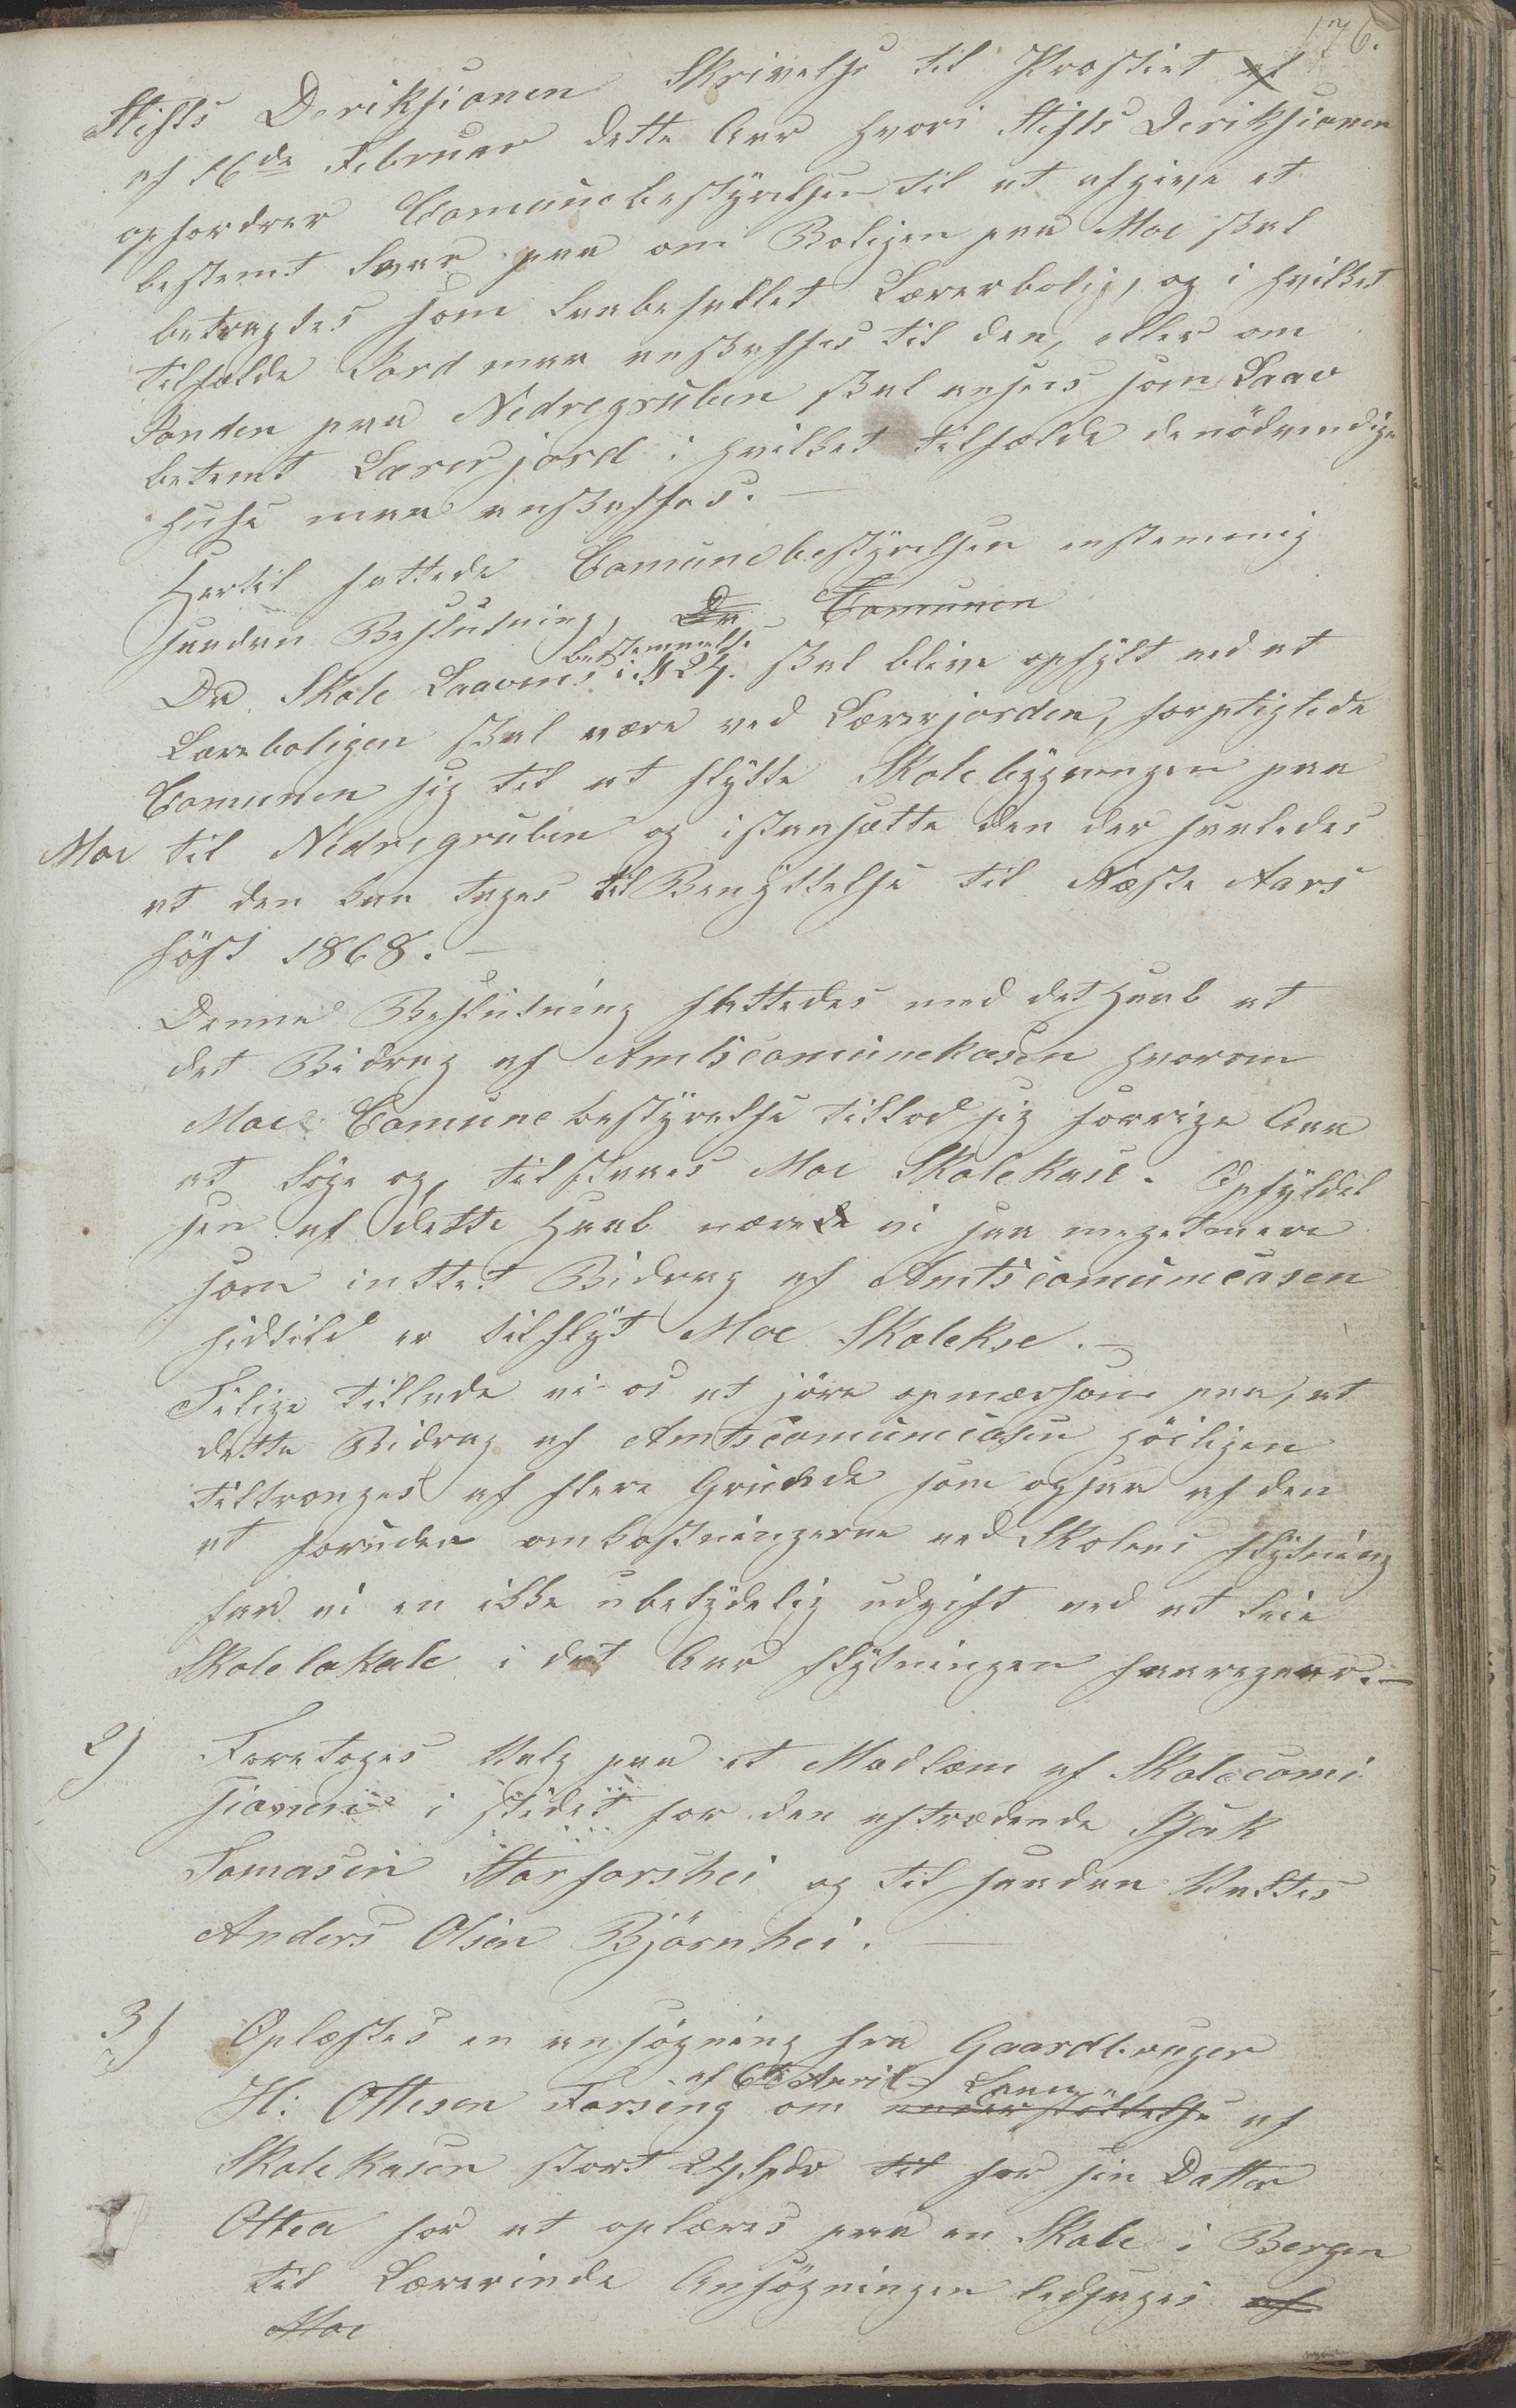 176.
Stifts Deriksionen Skrivelse til Prostiet af
af 16de Februar dette Aar hvori Stifts Deriksionen
opfordrer Comunebestyrelsen til at afgive et
bestemt Svar paa om Boligen paa Moe skal
betragtes som Lavbefallet Lærerbolig, og i hvilket
tilfælde Jord maa anskaffes til den, eller om
Jorden paa Nedregruben skal ansees som Laav
betemt Lærerjord i hvilket tilfælde de nödvendige
Huse maa anskaffes. —
Hertil fattede Comunebestyrelsen enstemmig
saadan Beslutning, Da Comunen
Da Skole Laavens bestemmelse i § 24. skal blive opfylt ved at
Læreboligen skal være ved Lærerjorden, forpligtede
Comunen sig til at flytte Skolebygningen paa
Moe til Nedregruben og istansætte den der saaledes
at den kan tages til Benyttelse til Næste Aars
höst 1868. —
Denne Beslutning fattedes med det Haab at
det Bidrag af Amtscomunekasen hvorom
Moe Comunebestyrelse tillod sig forrige Aar
at söge og, tilstaaes Moe Skolekase. Opfyldel
sen af dette Haab nærede vi saa megetmere
som inttet Bidrag af Amtscomunecasen
hidtild er tilflyt Moe Skolekse. —
Tilige tillade vi os at jöre opmærsom paa, at
dette Bidrag af Amtscomunecasen höiligen
tiltrænges af flere Grunde som ogsaa af den
at foruden omkostningerne ved Skolens flytning
faar vi en ikke ubetydelig udgift ved at leie
Skolelokale i det Aar flytningen foraregaar. —
2) Foretoges Valg paa et Medlem af Skolecomi
sionen i stedet for den aftrædende Isak
Tomasen Storforshei og til saadan Valtes
Anders Olsen Björnhei. —
3) Oplæstes en ansögning fra Gaardbruger
H. Ottesen Forseng af 6te April om understöttelse Laan af
Skolekasen stort 24 Spdr til for sin Datter
Ottea for at oplæres paa en Skole i Bergen
til Lærerinde Ansögningen ledsages af
Moe